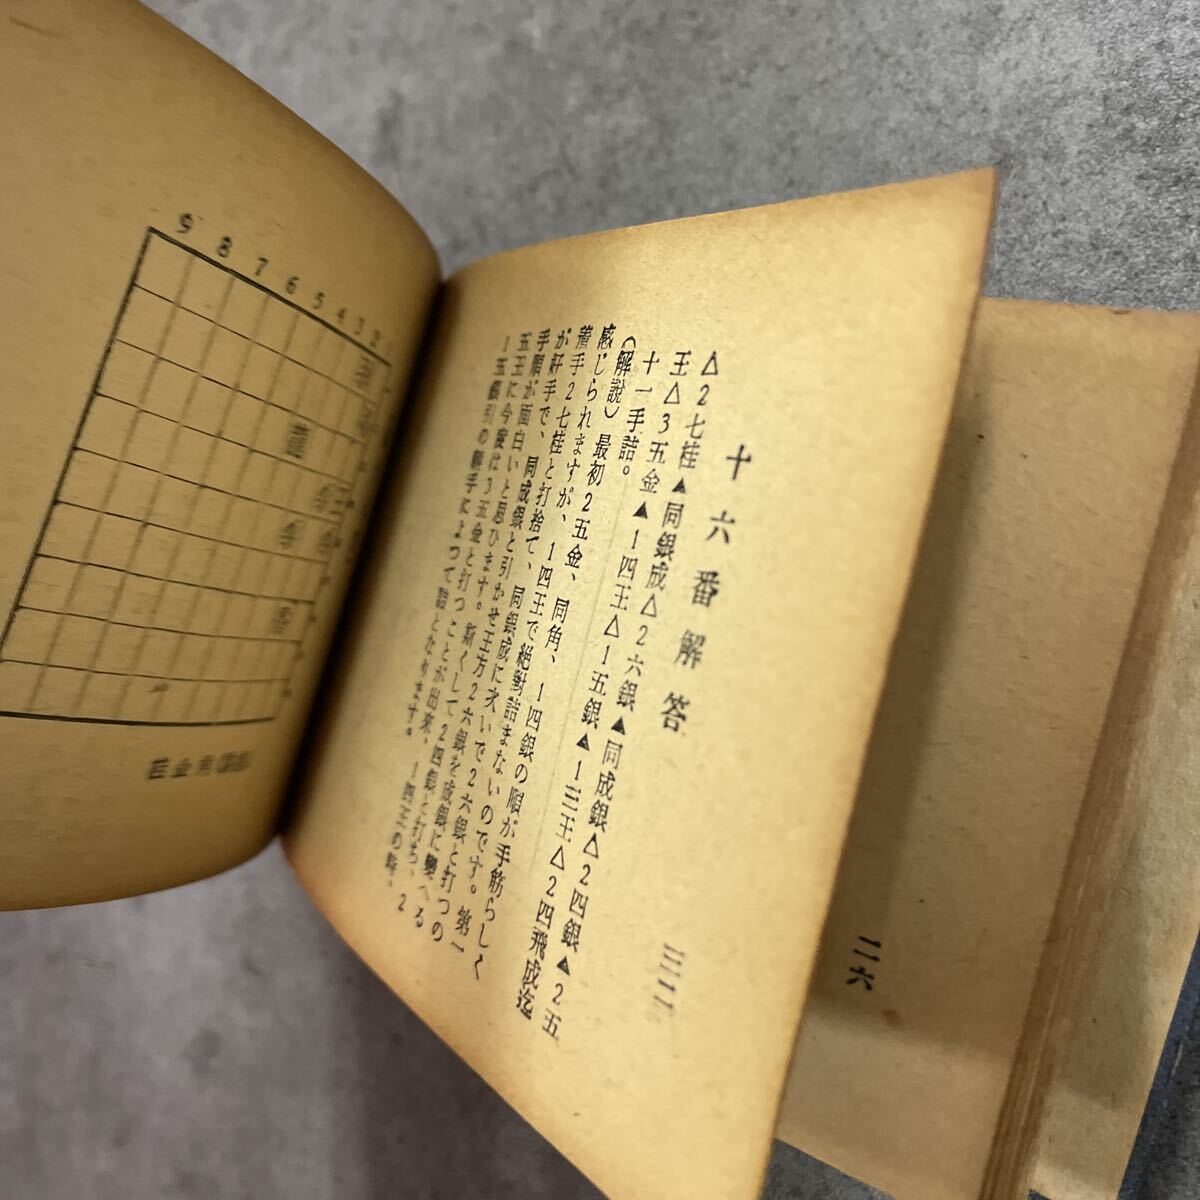 十六番解答
三二
△2七桂▲同銀成△2六銀▲同成銀△2四銀▲2五
王△3五金▲1四王△1五銀▲1三王△2四飛成迄
十一手詰。
(解説) 最初2五金、同角、1四銀の順が手筋らしく
感じられますが、1四王で絶對詰まないのです。第一
着手2七桂と打捨て、同銀成に次いで2六銀と打つの
が好手で、同成銀と引かせ王方2六銀を成銀に變へる
手順が面白いと思ひます。斯くして2四銀と打ち、2
五王に今度は3五金と打つことが出來、1四王の時、
1五銀引の勝手によつて詰となります。
二六
9 8 7 6 5 4 3 2